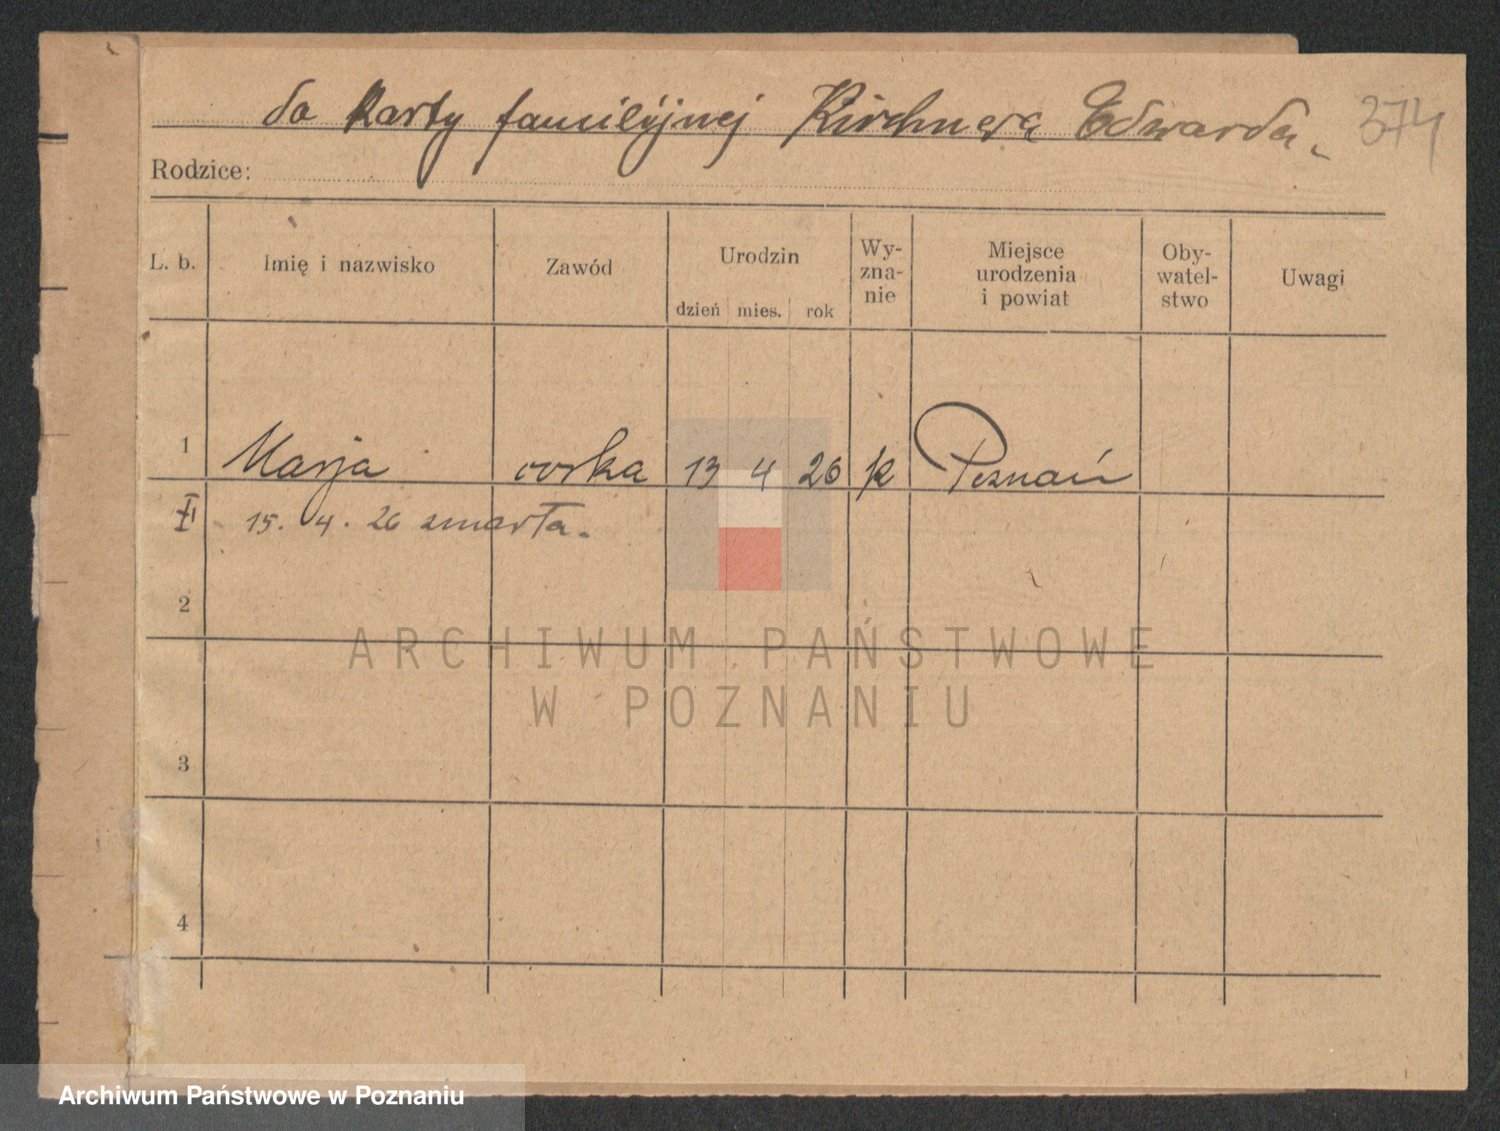 do karty familijnej Kirchnera Edwarda. 374
Rodzice:
L. b. Imię i nazwisko Zawód Urodzin dzień mies. rok Wy-zna-nie Miejsce urodzenia i powiat Oby-watel-stwo Uwagi
1 Marja córka 13 4 26 k Poznań
15. 4. 26 zmarła.
2
3
4
ARCHIWUM PAŃSTWOWE
W POZNANIU
Archiwum Państwowe w Poznaniu